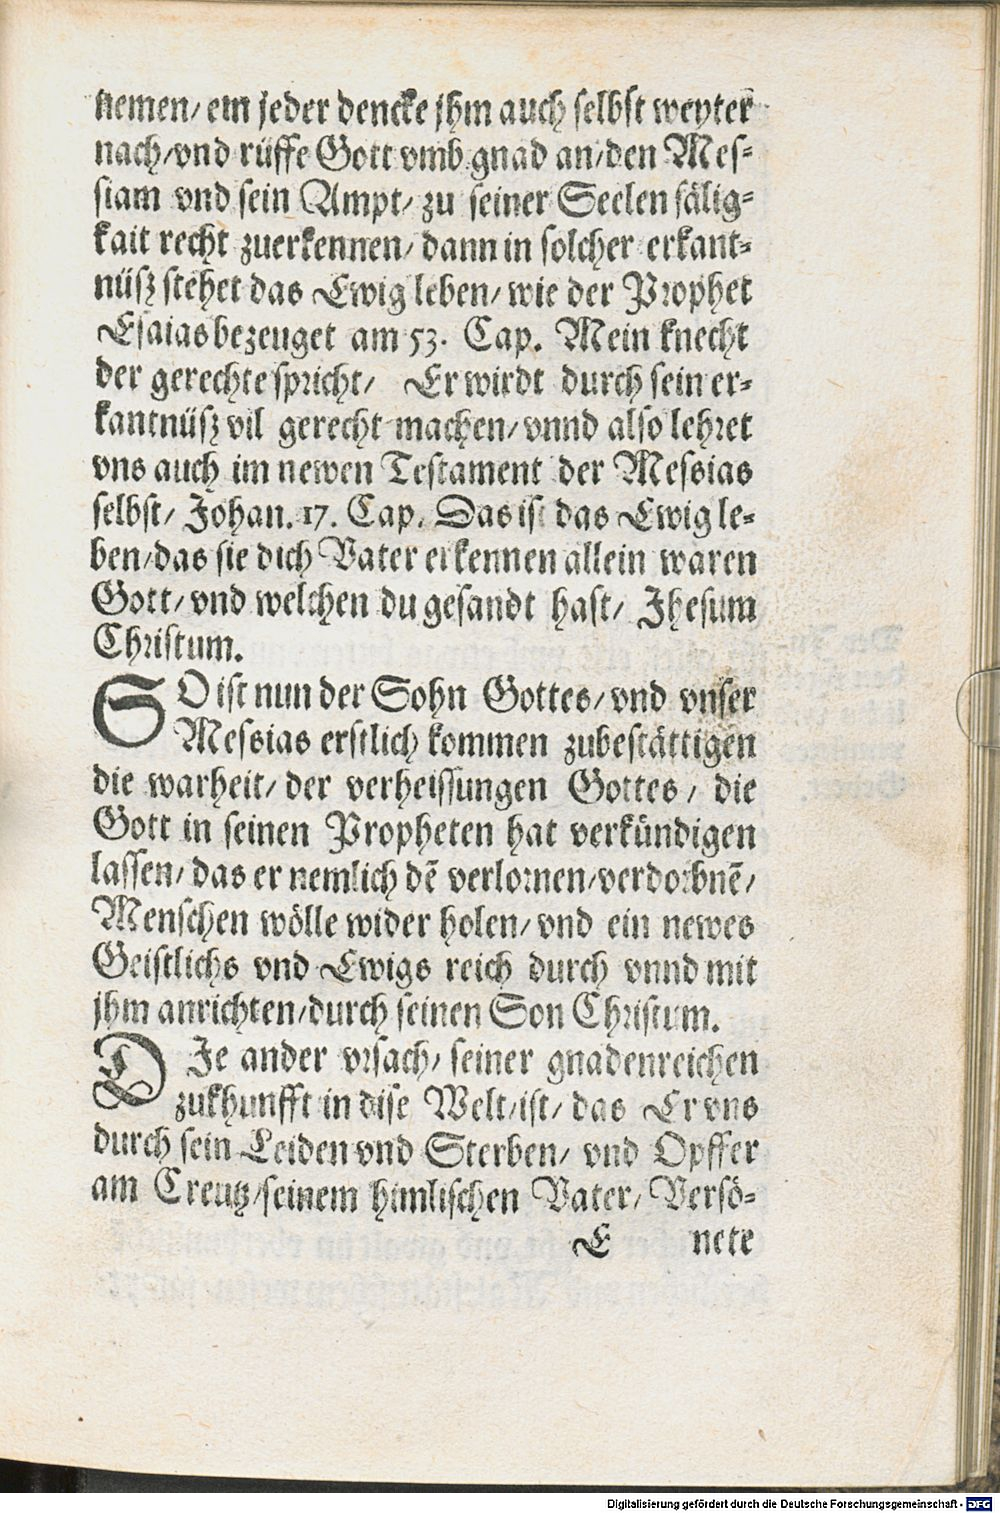 nemen/ ein jeder dencke jhm auch selbst weyter
nach/vnd rüffe Gott vmb gnad an/den Mes-
siam vnd sein Ampt/ zu seiner Seelen sälig-
kait recht zuerkennen/ dann in solcher erkant-
nüsz stehet das Ewig leben/ wie der Prophet
Esaias bezeuget am 53. Cap. Mein knecht
der gerechte spricht/ Er wirdt durch sein er-
kantnüsz vil gerecht machen/ vnnd also lehret
vns auch im newen Testament der Messias
selbst/ Johan. 17. Cap. Das ist das Ewig le-
ben/das sie dich Vater erkennen allein waren
Gott/ vnd welchen du gesandt hast/ Jhesum
Christum.
SO ist nun der Sohn Gottes/ vnd vnser
Messias erstlich kommen zubestättigen
die warheit/ der verheissungen Gottes/ die
Gott in seinen Propheten hat verkündigen
lassen/ das er nemlich dē verlornen/verdorbnē/
Menschen wölle wider holen/ vnd ein newes
Geistlichs vnd Ewigs reich durch vnnd mit
jhm anrichten/durch seinen Son Christum.
DJe ander vrsach/ seiner gnadenreichen
zukhunfft in dise Welt/ist/ das Er vns
durch sein Leiden vnd Sterben/ vnd Opffer
am Creutz/seinem himlischen Vater/ Versö-
E nete
Digitalisierung gefördert durch die Deutsche Forschungsgemeinschaft - DFG